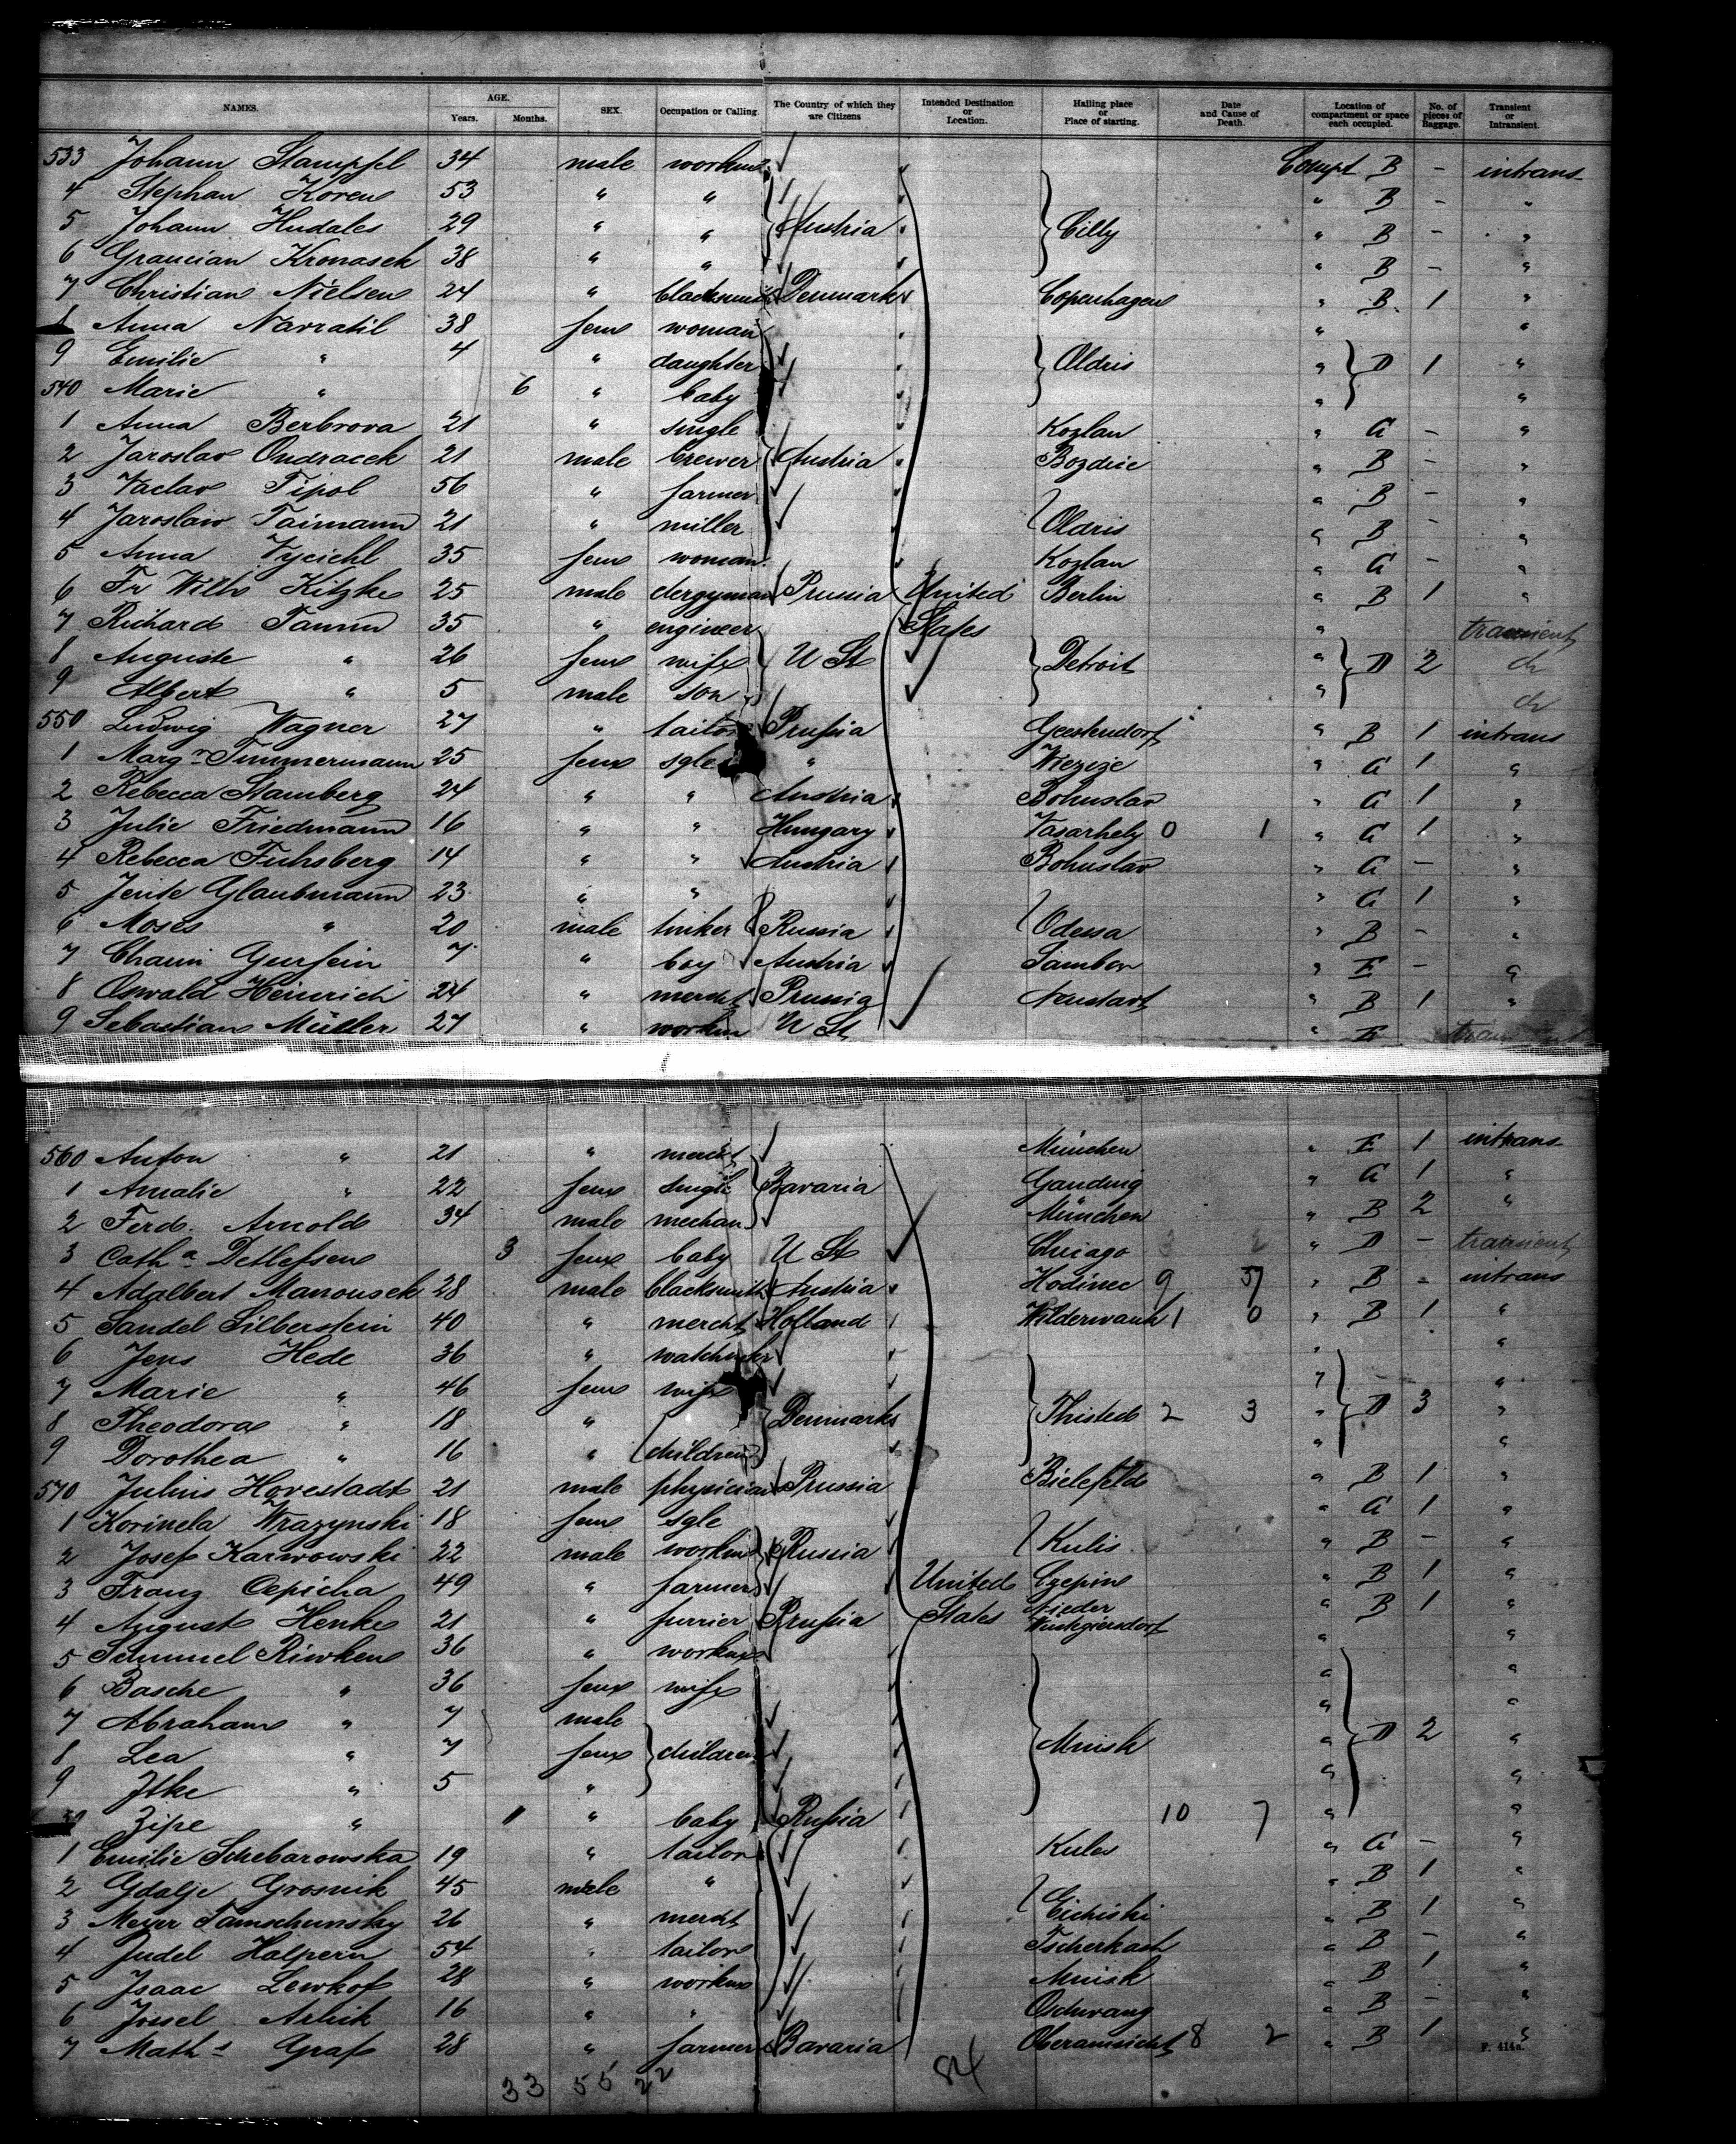 NAMES. AGE. Years. Months. SEX. Occupation or Calling. The Country of which they are Citizens Intended Destination or Location. Hailing place or Place of starting. Date and Cause of Death. Location of compartment or space each occupied. No. of pieces of Baggage. Transient or Intransient.
533 Johann Stampfel 34 male workm Compt B - intrans
4 Stephan Koren 53 " " " B - "
5 Johann Hudales 29 " " Austria Cilly " B - "
6 Graucian Kronasek 38 " " " B - "
7 Christian Nielsen 24 " blacksmith Denmark Copenhagen " B 1 "
8 Anna Navratil 38 fem woman " "
9 Emilie " 4 " daughter Oldris " D 1 "
540 Marie " 6 " baby " "
1 Anna Berbrova 21 " single Kozlan " C - "
2 Jaroslav Ondracek 21 male brewer Austria Bozdic " B - "
3 Vaclav Tipol 56 " farmer " B - "
4 Jaroslaw Taimann 21 " miller Oldris " B - "
5 Anna Vyciehl 35 fem woman Kozlan " C - "
6 Fr Wilh Kitzke 25 male clergyman Prussia United Berlin " B 1 "
7 Richard Tamm 35 " engineer States " transient
8 Auguste " 26 fem wife U St Detroit " D 2 do
9 Albert " 5 male son " do
550 Ludwig Wagner 27 " tailor Prussia Geestendorf " B 1 intrans
1 Marg. Timmermann 25 fem sgle " " C 1 "
2 Rebecca Stamberg 24 " " Austria Bohuslav " C 1 "
3 Julie Friedmann 16 " " Hungary Vasarhely 0 1 " C 1 "
4 Rebecca Fuhsberg 14 " " Austria Bohuslav " C - "
5 Jente Glaubmann 23 " " " C 1 "
6 Moses " 20 male tinker Russia Odessa " B - "
7 Chaim Gursein 7 " boy Austria Sambor " E - "
8 Oswald Heinrich 24 " mercht Prussia Neustadt " B 1 "
9 Sebastian Müller 27 " workm U St " E transient
560 Anton " 21 " mercht München " E 1 intrans
1 Amalie " 22 fem single Bavaria Gauding " C 1 "
2 Ferd. Arnold 34 male mechan München " B 2 "
3 Catha Detlefsen 3 fem baby U St Chicago " D - transient
4 Adalbert Manousek 28 male blacksmith Austria Hodinec 9 57 " B - intrans
5 Sandel Silberstein 40 " mercht Holland Wilderwank 1 0 " B 1 "
6 Jens Hede 36 " watchmkr " "
7 Marie " 46 fem wife " "
8 Theodora " 18 " Denmark Thisted 2 3 " D 3 "
9 Dorothea " 16 " children " "
570 Julius Hovestadt 21 male physician Prussia Bielefeld " B 1 "
1 Korinela Wrazynski 18 fem sgle " C 1 "
2 Josef Karwowski 22 male workm Russia Kulis " B - "
3 Franz Cepicha 49 " farmer United Czepin " B 1 "
4 August Henke 21 " furrier Prussia States Nieder Wüstgiersdorf " B 1 "
5 Schmuel Riwken 36 " workm " "
6 Basche " 36 fem wife " "
7 Abraham " 7 male " "
8 Lea " 7 fem children Minsk " D 2 "
9 Itke " 5 " " "
80 Zipe " 11 " baby Russia 10 7 " "
1 Emilie Schebarowska 19 " tailor Kules " C - "
2 Gdalje Grosnik 45 male " " B 1 "
3 Meyer Tamschunsky 26 " mercht Eichiski " B 1 "
4 Judel Halpern 54 " tailor Tscherkash " B - "
5 Isaac Lewkof 28 " workm Minsk " B 1 "
6 Jossel Arlick 16 " " Oschwang " B - "
7 Maths Graf 28 " farmer Bavaria 8 2 " B 1 "
F. 414a.
33 55 22 84